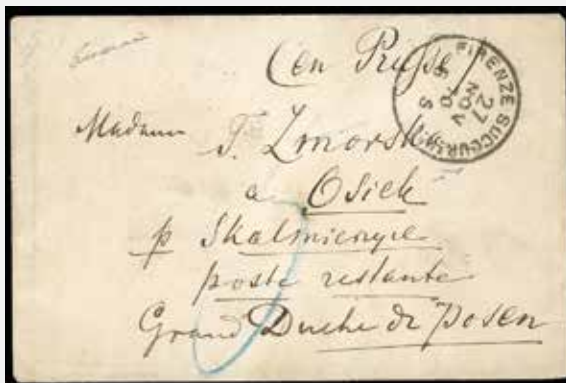 (en Prusse)
FIRENZE SUCCURS
27 NOV 70 S
Madame T. Zmorska
a Osiek
p Skalmierzyce
poste restante
Grand Duché de Posen